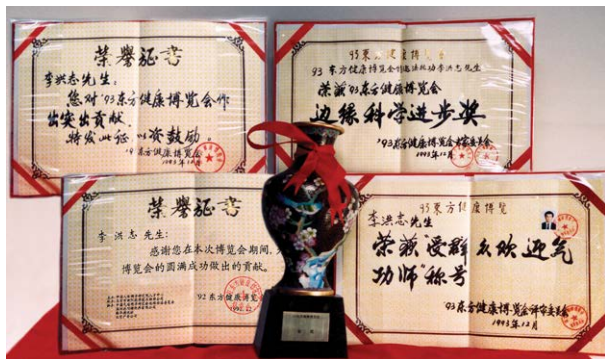 荣誉证书
李洪志先生：
您对'93东方健康博览会作
出突出贡献，
特发此证，以资鼓励。
'93东方健康博览会
1993年12月
93东方健康博览会
荣获'93东方健康博览会
边缘科学进步奖
1993年12月
荣誉证书
李洪志先生：
感谢您在本次博览会期间，
博览会的圆满成功做出的贡献。
'92东方健康博览
93东方健康博览
李洪志先生
荣获受群众欢迎气
功师称号
'93东方健康博览会评审委员会
1993年12月